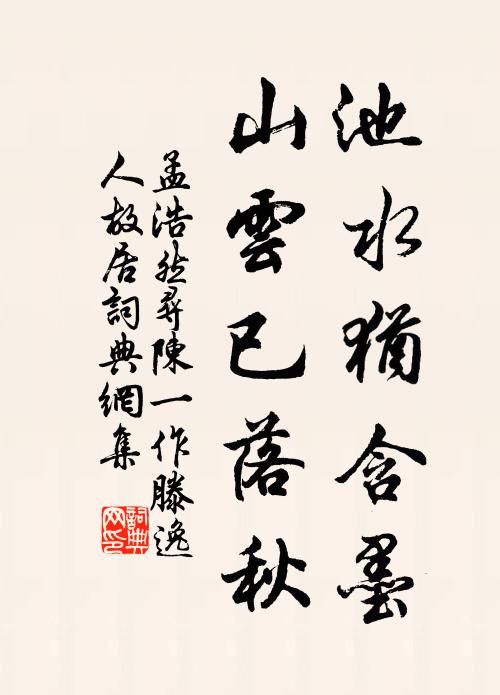 池水猶含墨
山雲已落秋
孟浩然尋陳一作滕逸
人故居詞典網集
詞典
网印